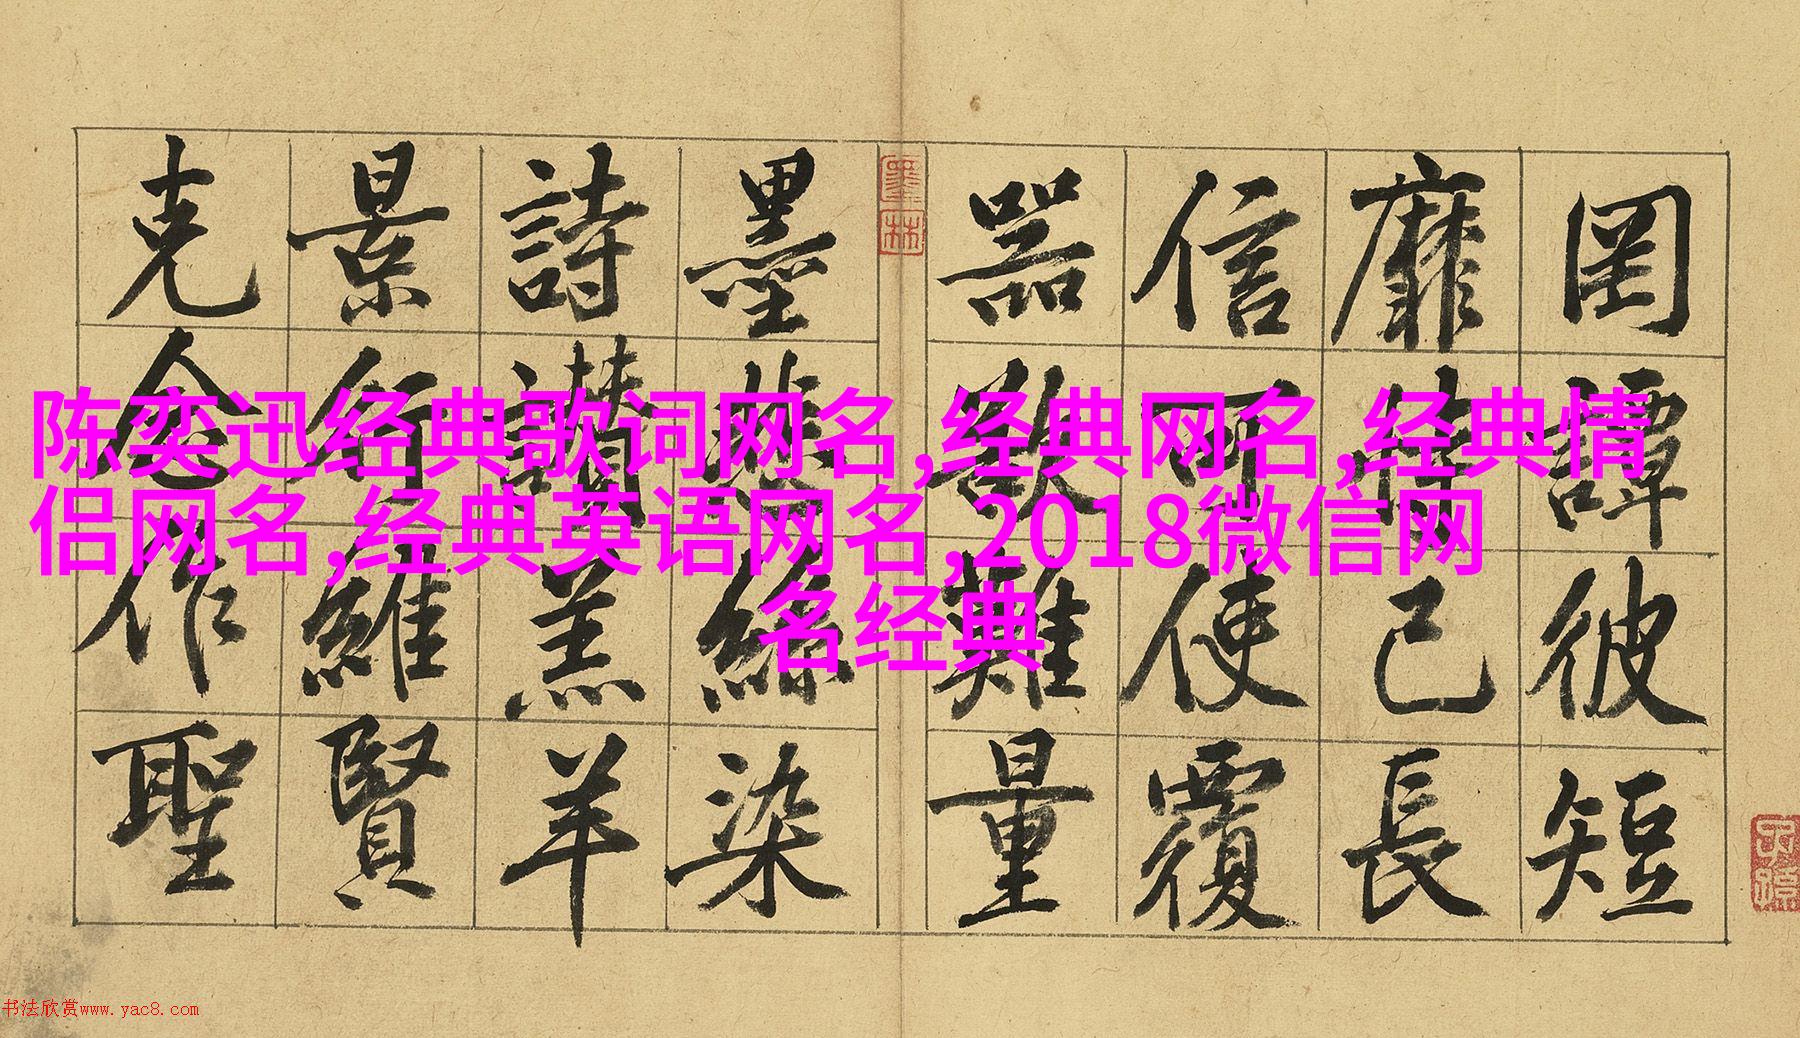 陈奕迅经典歌词网名,经典网名,经典情
侣网名,经典英语网名,2018微信网
名经典
罔談彼短
靡恃己長
信可使覆
器欲難量
墨悲絲染
詩讚羔羊
景行維賢
克念作聖
墨林
书法欣赏www.yac8.com